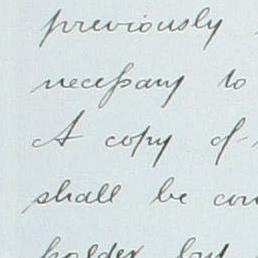 previously
necessary to
A copy of
shall be
holder but